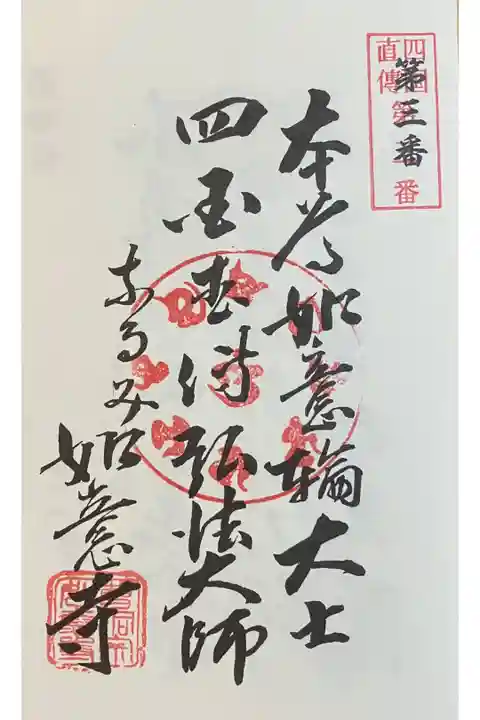 四國直傳
第三番
本尊如意輪大士
四国直傳弘法大師
なるみ
如意寺